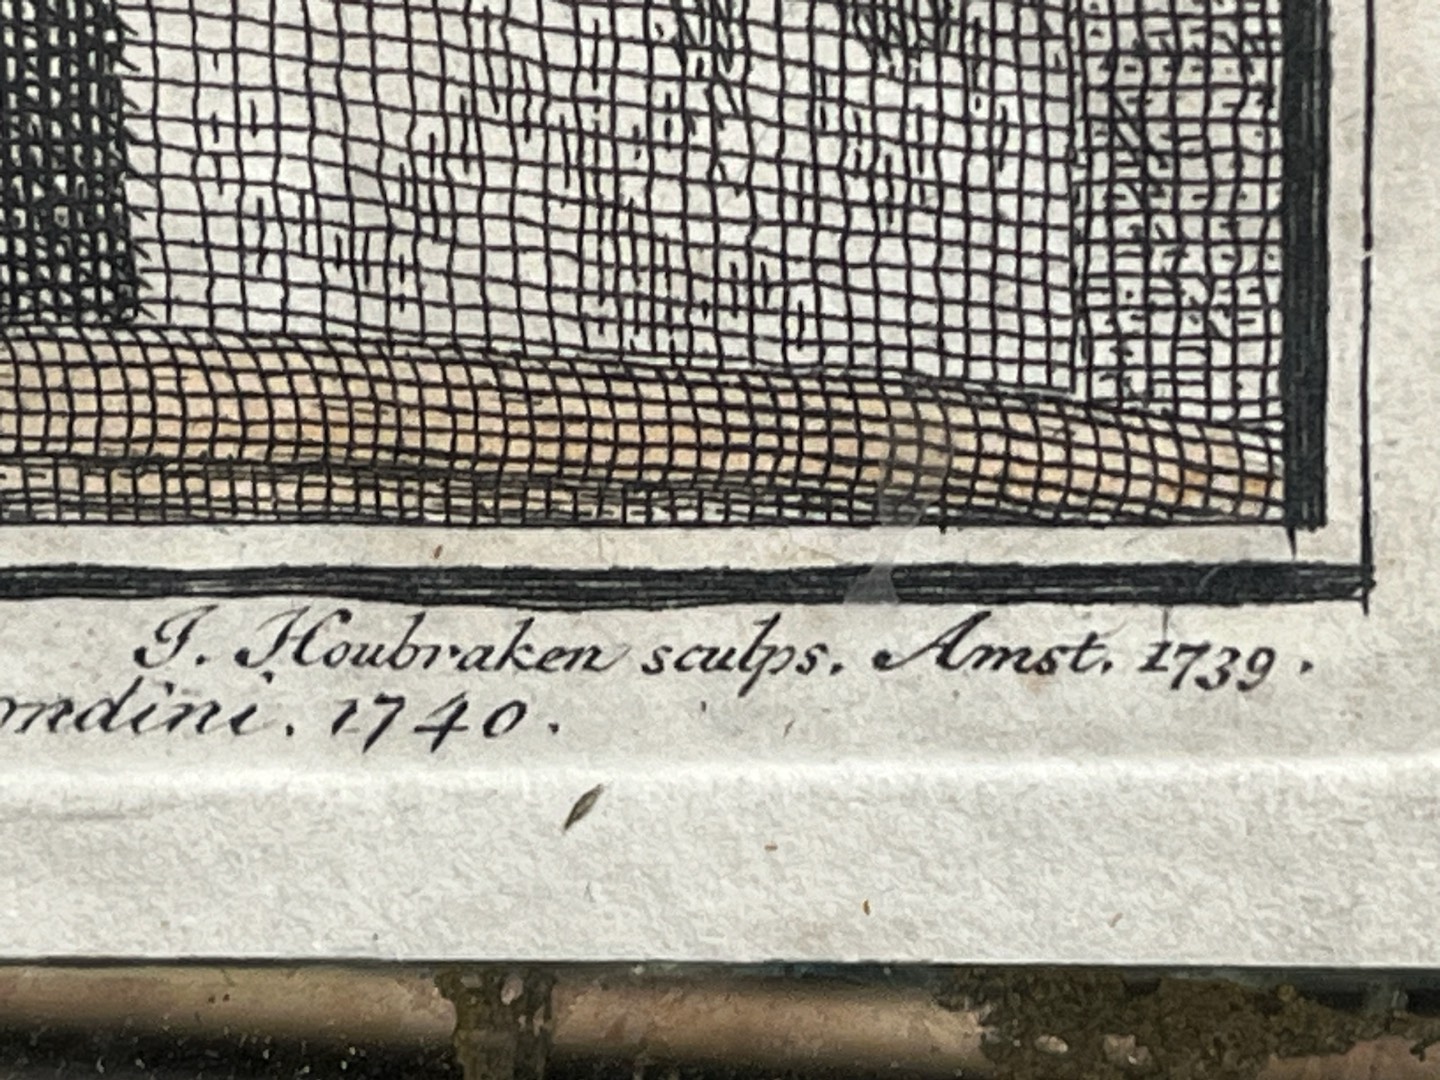 J. Houbraken sculps. Amst. 1739.
ondini. 1740.